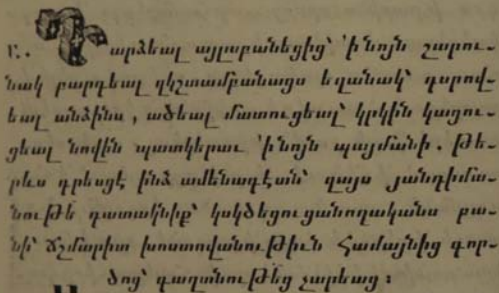 Բ. Դարձեալ այլաբանեցից՝ ՚ի նոյն շարու֊
նակ բարդեալ զկշտամբանացս եղանակ՝ գարով֊
եալ անձինս, ածեալ մատուցեալ՝ կրկին կացու֊
ցեալ նովին պատկերաւ ՚ի նոյն պայմանի. Թե֊
րևս գրեսցէ ինձ ամենագէտն՝ զայս յանդիմա֊
նութե դատակնիք՝ կսկծեցուցանողականս բա֊
նի՝ ճշմարիտ խոստովանութիւն Համայնից գոր֊
ծոց՝ գաղտնութեց չարեաց։